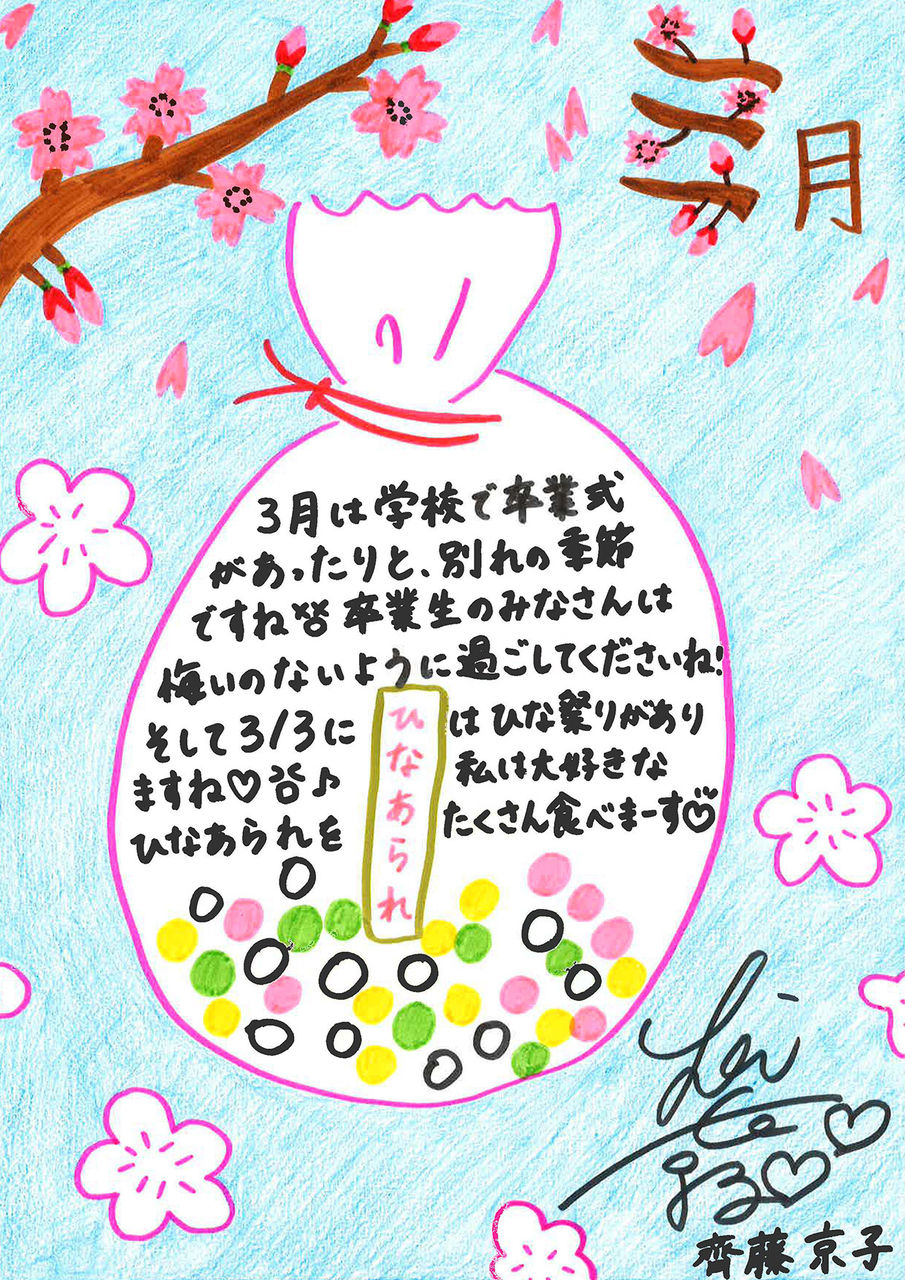 三月
3月は学校で卒業式
があったりと、別れの季節
ですね 卒業生のみなさんは
悔いのないように過ごしてくださいね!
そして3/3にはひな祭りがあり
ますね♡ ♪ 私は大好きな
ひなあられをたくさん食べまーす♡
ひなあられ
齊藤京子